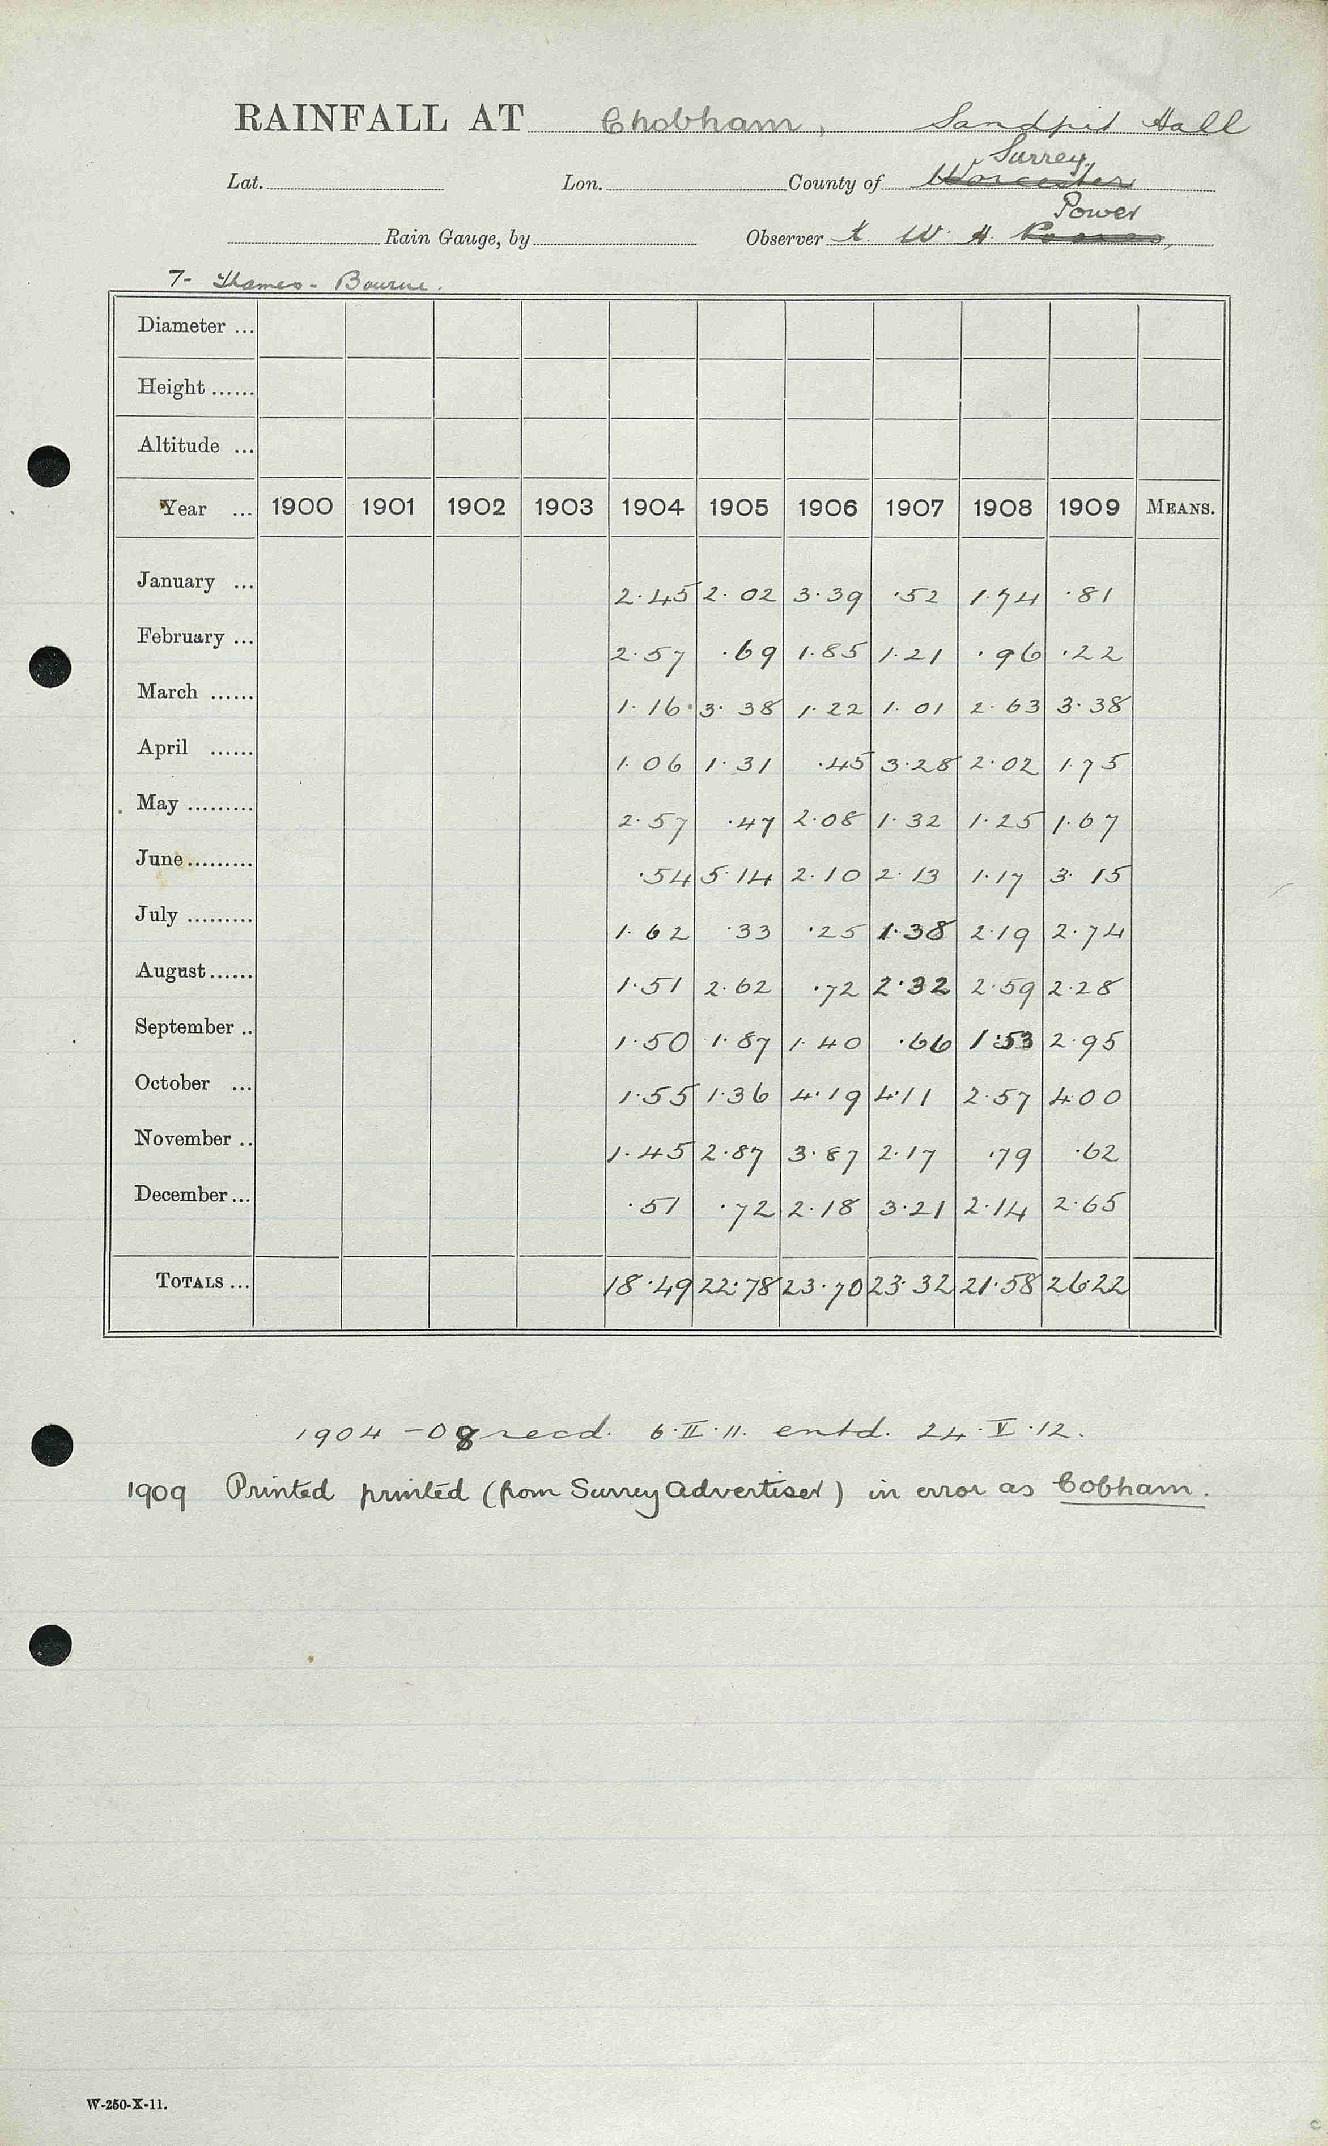 RAINFALL AT Chobham, Sandpit Hall
Surrey,
Lat. Lon. County of Worcester
Power
Rain Gauge, by Observer W. H.
7- Thames - Bourne.
Diameter ...
Height ......
Altitude ...
Year ... 1900 1901 1902 1903 1904 1905 1906 1907 1908 1909 MEANS.
January ... 2.45 2.02 3.39 .52 1.74 .81
February ... 2.57 .69 1.85 1.21 .96 .22
March ...... 1.16 3.38 1.22 1.01 2.63 3.38
April ...... 1.06 1.31 .45 3.28 2.02 1.75
May ......... 2.57 .47 2.08 1.32 1.25 1.67
June......... .54 5.14 2.10 2.13 1.17 3.15
July ......... 1.62 .33 .25 1.38 2.19 2.74
August...... 1.51 2.62 .72 2.32 2.59 2.28
September .. 1.50 1.87 1.40 .66 1.53 2.95
October ... 1.55 1.36 4.19 4.11 2.57 4.00
November .. 1.45 2.87 3.87 2.17 .79 .62
December ... .51 .72 2.18 3.21 2.14 2.65
TOTALS ... 18.49 22.78 23.70 23.32 21.58 26.22
1904 - 08 recd. 6.II.11. entd. 24.V.12.
1909 Printed printed (from Surrey Advertiser) in error as Cobham.
W-250-X-11.